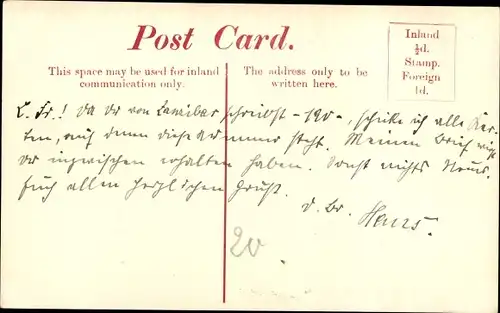 Post Card.
Inland
½d.
Stamp.
Foreign
1d.
This space may be used for inland
communication only.
The address only to be
written here.
L. Fr.! Da Du von schreibst - 190 -, schicke ich alle Kar-
ten, auf denen diese Nummer steht. Meinen Brief wirst
Du inzwischen erhalten haben. Sonst nichts Neues.
Euch allen herzlichen Gruß.
D. Br. Hans.
20